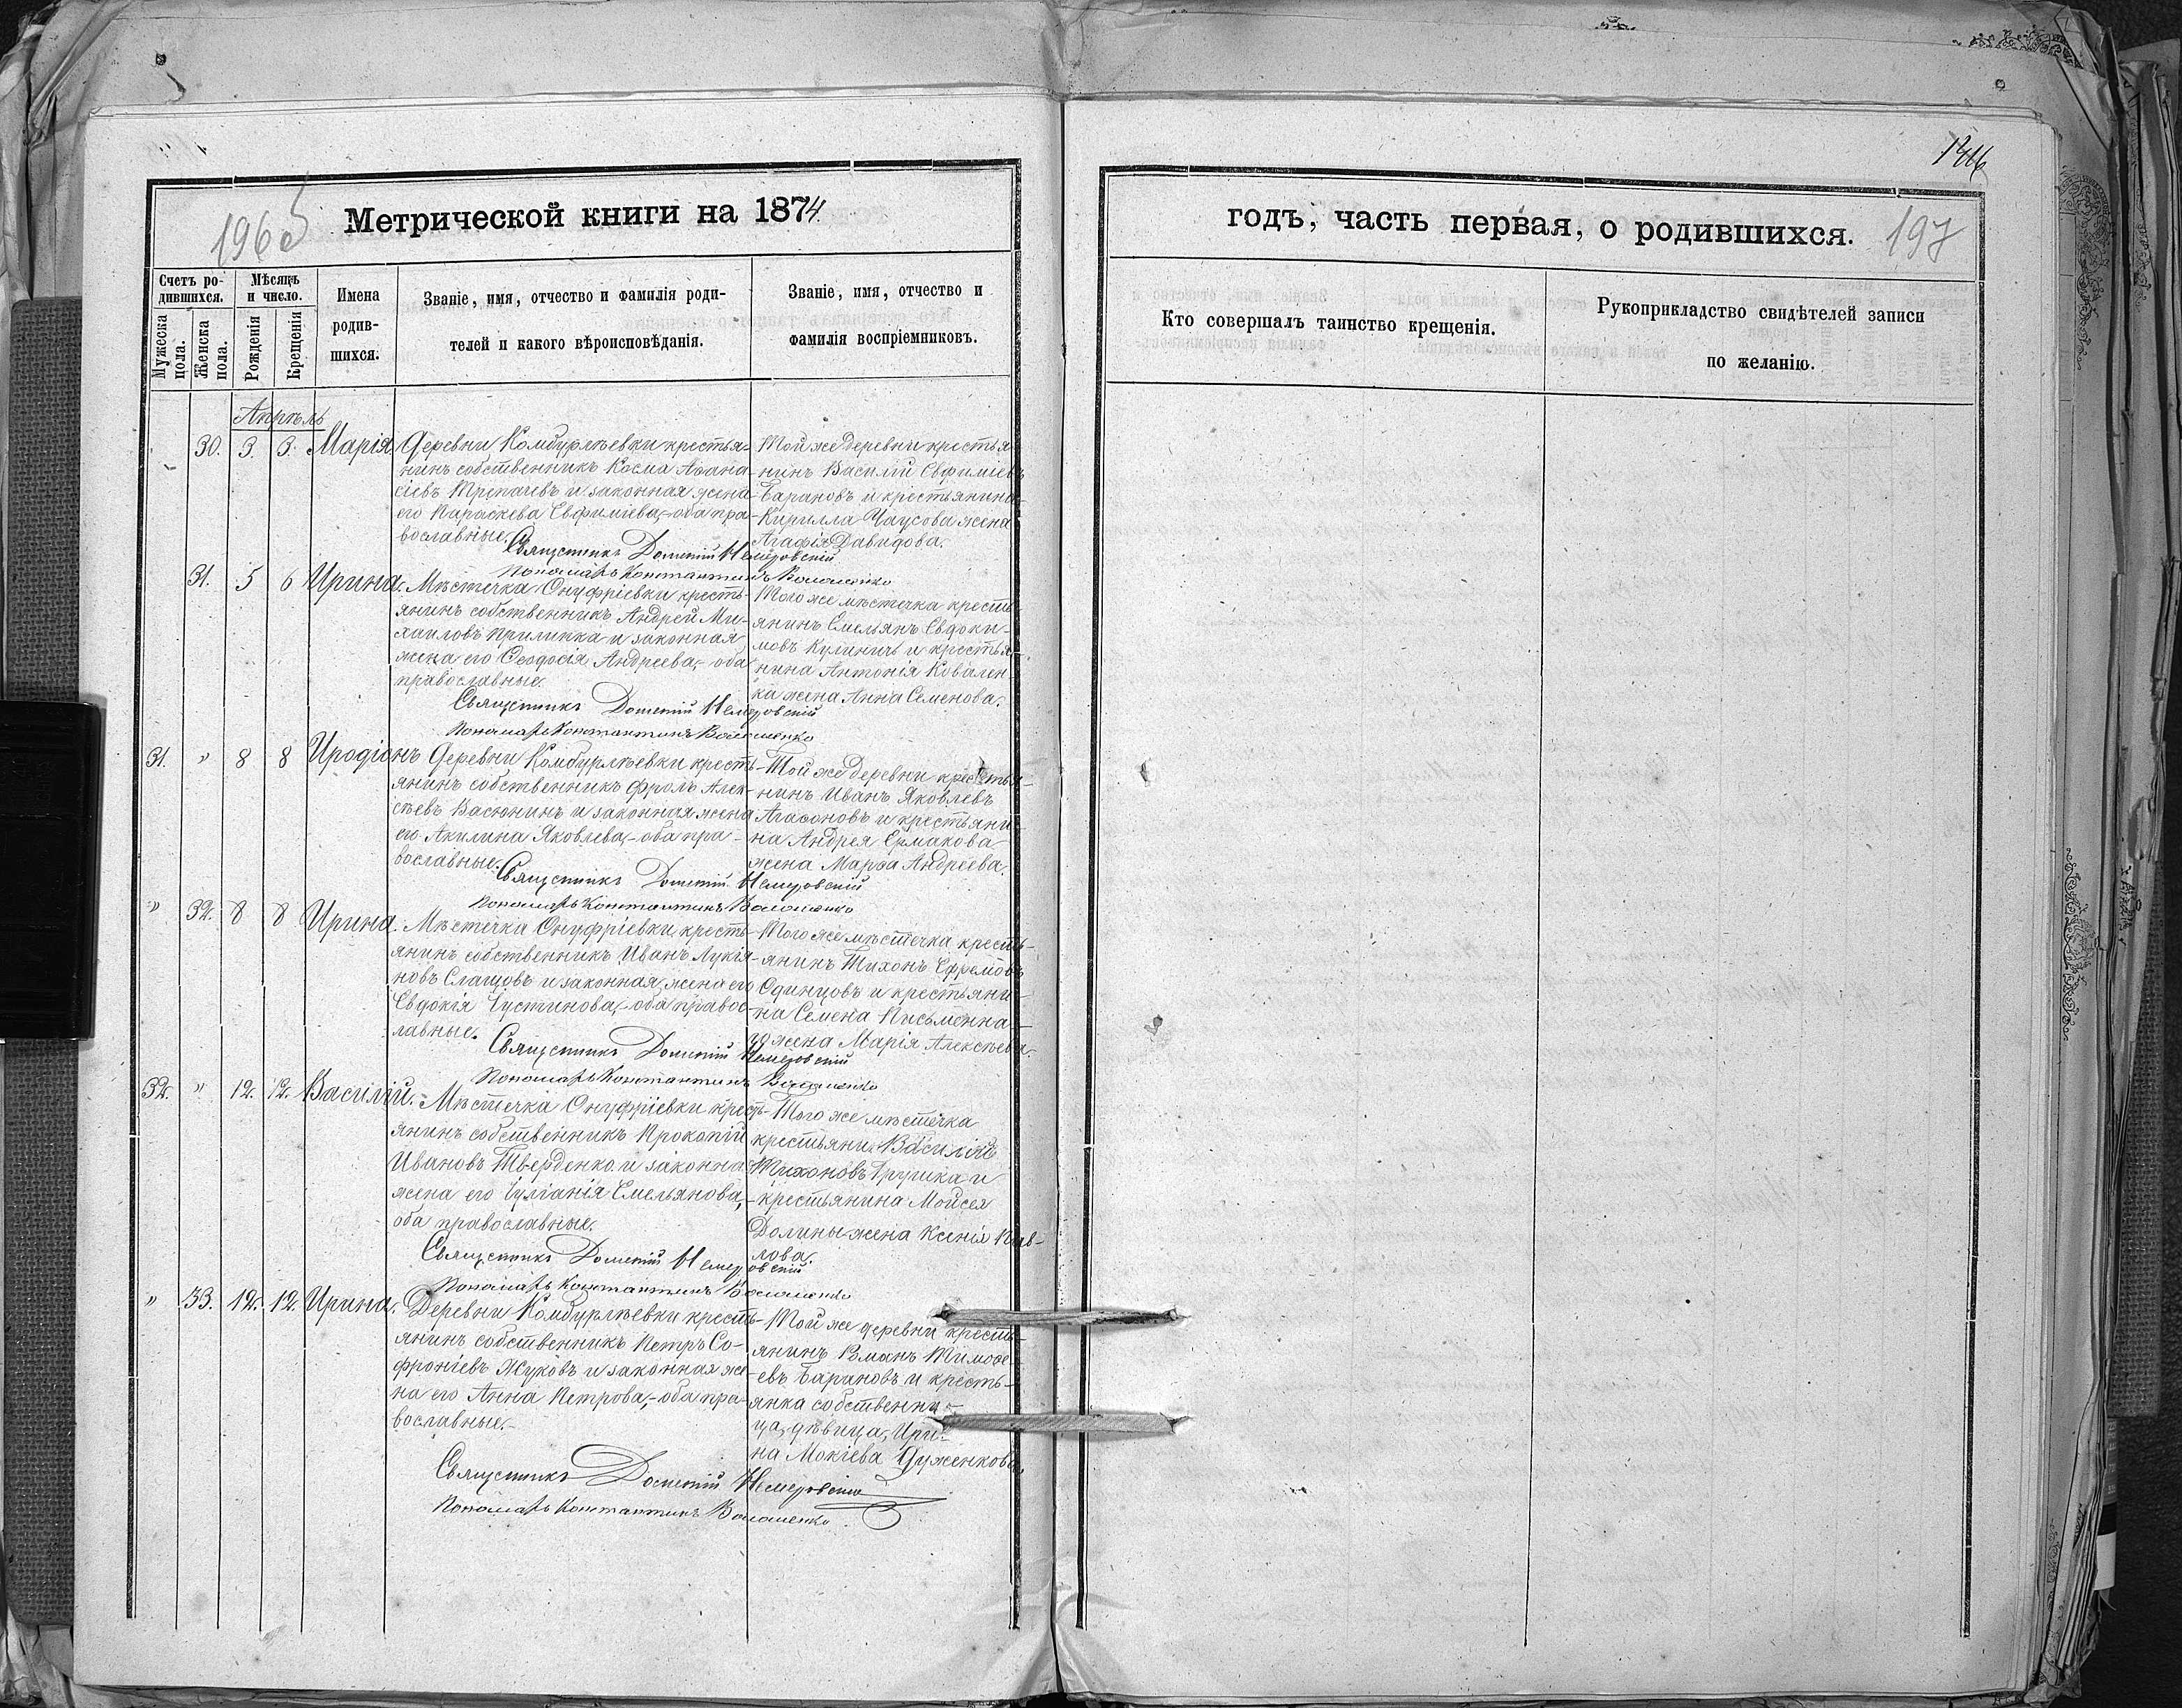 146
196
Метрической книги на 1874
годъ, часть первая, о родившихся.
197
Счетъ ро-
дившихся.
Мѣсяцъ
и число.
Мужеска
пола.
Женска
пола.
Рожденія
Крещенія
Имена
родив-
шихся.
Званіе, имя, отчество и фамилія роди-
телей и какого вѣроисповѣданія.
Званіе, имя, отчество и
фамилія воспріемниковъ.
Кто совершалъ таинство крещенія.
Рукоприкладство свидѣтелей записи
по желанію.
Апрѣль
30. 3. 3. Марія.
Деревни Камбурлѣевки крестья-
нинъ собственникъ Косма Аѳана-
сіевъ Трепачевъ и законная жена
его Параскева Евфиміева,-оба пра-
вославные.
Той же деревни крестья-
нинъ Василій Евфиміевъ
Барановъ и крестьянина
Кирилла Чаусова жена
Агафія Давидова.
Священникъ Дометій Немеровскій
Пономарь Константинъ Волошенко
31. 5 6 Ирина.
Мѣстечка Онуфріевки кресть-
янинъ собственникъ Андрей Ми-
хаиловъ Прилипка и законная
жена его Ѳеодосія Андреева,-оба
православные.
Того же мѣстечка кресть-
янинъ Емельянъ Евдоки-
мовъ Кулиничъ и крестья-
нина Антонія Ковален-
ка жена Анна Семенова.
Священникъ Дометій Немеровскій
Пономарь Константинъ Волошенко
31. " 8 8 Иродіонъ
Деревни Камбурлѣевки кресть-
янинъ собственникъ Фролъ Алек-
сѣевъ Васюнинъ и законная жена
его Акилина Яковлева,-оба пра-
вославные.
Той же деревни крестья-
нинъ Иванъ Яковлевъ
Агаѳоновъ и крестьяни-
на Андрея Ермакова
жена Марѳа Андреева.
Священникъ Дометій Немеровскій
Пономарь Константинъ Волошенко
" 32. 8 8 Ирина.
Мѣстечка Онуфріевки кресть-
янинъ собственникъ Иванъ Лукія-
новъ Слащовъ и законная жена его
Евдокія Іустинова,-оба правос-
лавные.
Того же мѣстечка кресть-
янинъ Тихонъ Ефремовъ
Одинцовъ и крестьяни-
на Семена Письменна-
го жена Марія Алексѣева.
Священникъ Дометій Немеровскій
Пономарь Константинъ Волошенко
32. " 12. 12. Василій.
Мѣстечка Онуфріевки кресть-
янинъ собственникъ Прокопій
Ивановъ Тверденко и законна
жена его Іуліанія Емельянова,-
оба православные.
Того же мѣстечка
крестьянин Василій
Тихоновъ Грушка и
крестьянина Мойсея
Долины жена Ксенія Пав-
лова.
Священникъ Дометій Немеровскій
Пономарь Константинъ Волошенко
" 33. 12. 12. Ирина.
Деревни Камбурлѣевки кресть-
янинъ собственникъ Петръ Со-
фроніевъ Жуковъ и законная же-
на его Анна Петрова,-оба пра-
вославные.-
Той же деревни кресть-
янинъ Романъ Тимоѳе-
евъ Барановъ и кресть-
янка собственни-
ца, дѣвица, Ири-
на Мокіева Дуженкова.
Священникъ Дометій Немеровскій
Пономарь Константинъ Волошенко